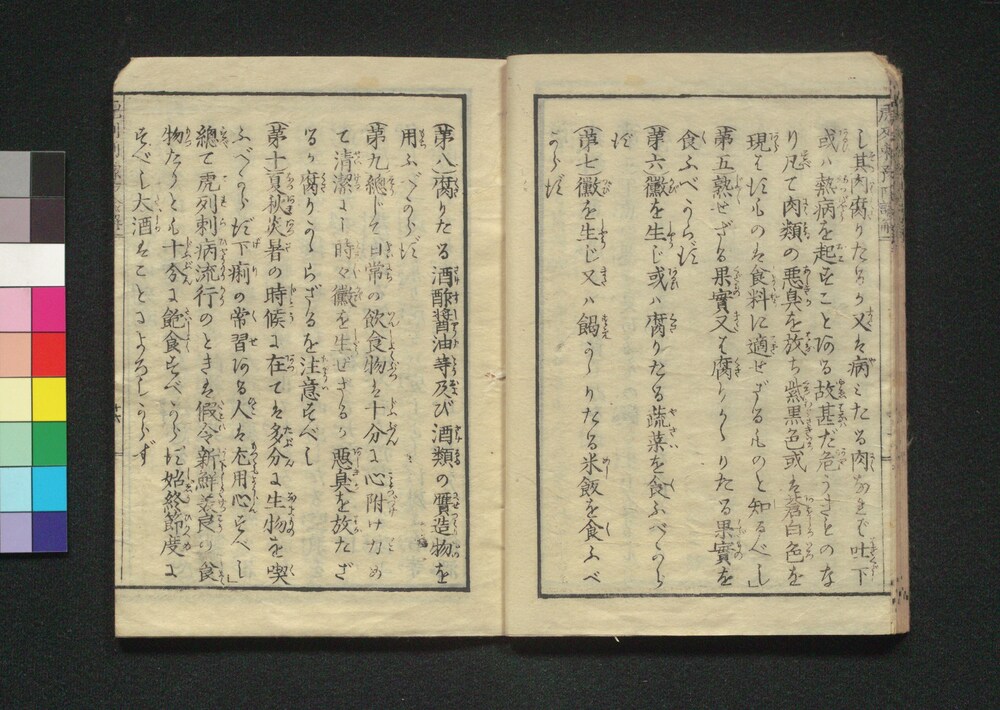 し其肉腐りたるか又は病ミたる肉なれば吐下
或ハ熱病を起すことある故甚だ危うきものな
り凡て肉類の悪臭を放ち紫黒色或は蒼白色を
現はすものは食料に適せざるものと知るべし」
(第五)熟せざる果實又は腐りかゝりたる果實を
食ふべからず
(第六)黴を生じ或ハ腐りたる蔬菜を食ふべから
ず
(第七)黴を生じ又ハ餲かゝりたる米飯を食ふべ
からず
(第八)腐りたる酒酢醤油等及び酒類の贋造物を
用ふべからず
(第九)總じて日常の飲食物は十分に心附け力め
て清潔にし時々黴を生ぜざるか悪臭を放たざ
るか腐りかゝらざるを注意すべし
(第十)夏秋炎暑の時候に在ては多分に生物を喫
ふべからず下痢の常習ある人は尤用心すべし」
總て虎列剌病流行のときは假令新鮮善良の食
物たりとも十分に飽食すべからず始終節度に
すべし大酒はことによろしからず
十六